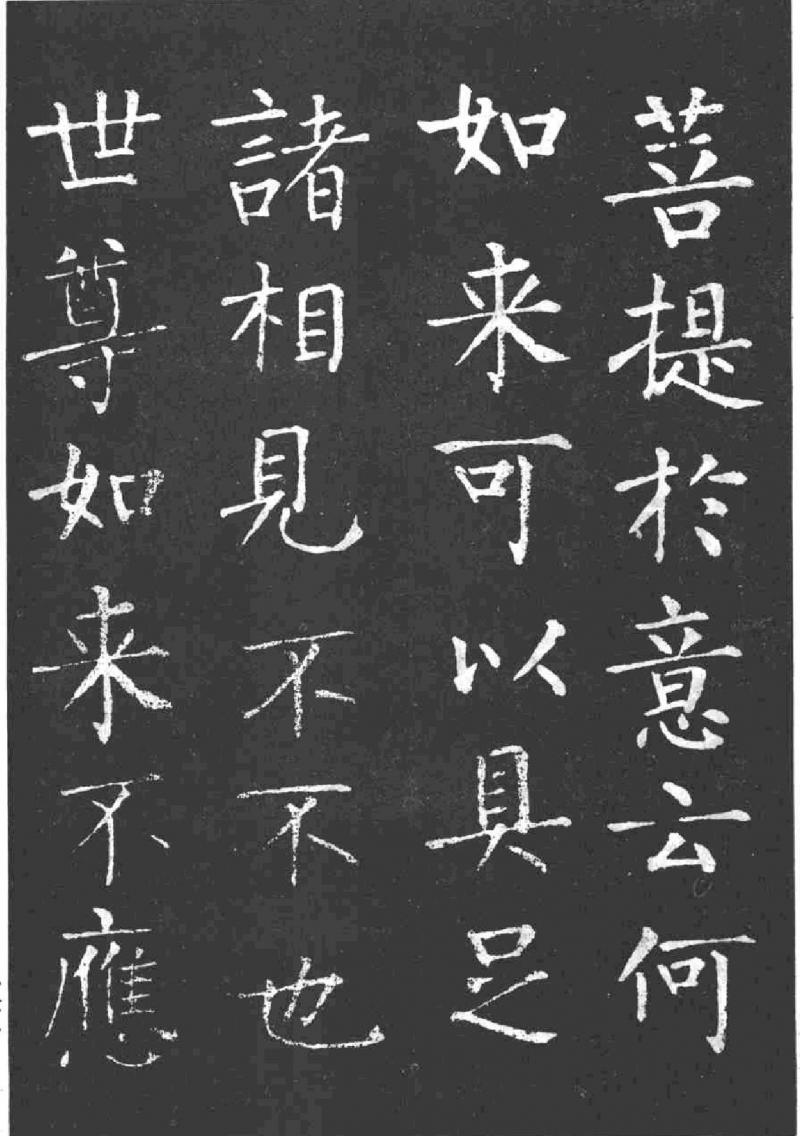 菩提於意云何
如来可以具足
諸相見不不也
世尊如来不應